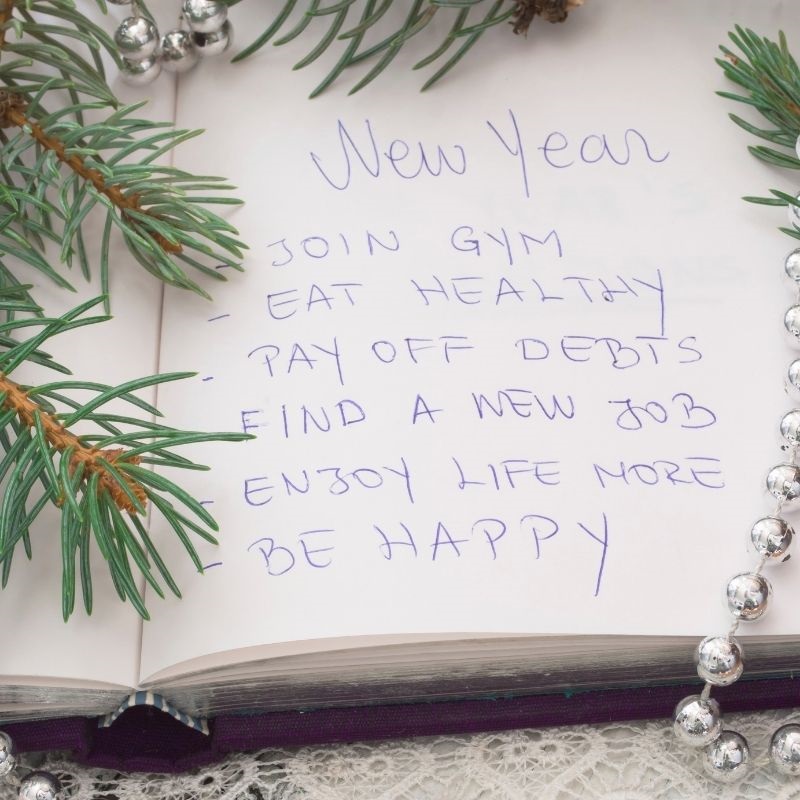 New Year
- JOIN GYM
- EAT HEALTHY
- PAY OFF DEBTS
FIND A NEW JOB
- ENJOY LIFE MORE
- BE HAPPY